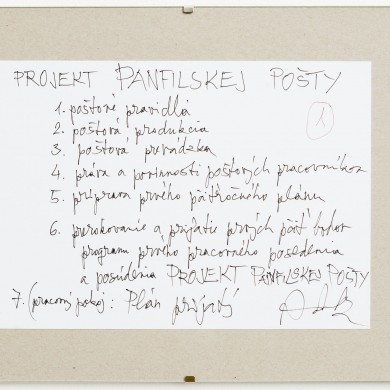 PROJEKT PANFILSKEJ POŠTY
1. poštové pravidlá
2. poštová produkcia
3 poštová prevádzka
4. práva a povinnosti poštových pracovníkov
5. príprava prvého päťročného plánu
6. prerokovanie a prijatie prvých päť bodov
programu prvého pracovného posedenia
a posúdenia PROJEKT PANFILSKEJ POŠTY
7. (pracovný pokoj: Plán prijatý
1